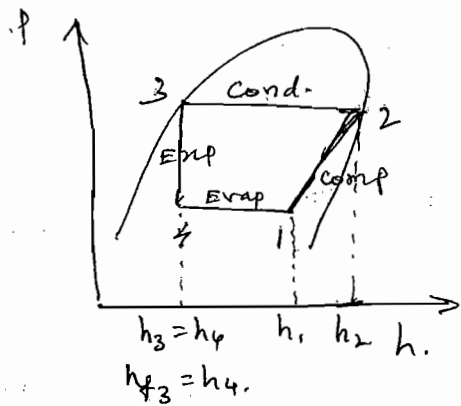 P
3 Cond. 2
Exp
Comp
Evap
4 1
h₃ = h₄ h₁ h₂ h.
hf₃ = h₄.